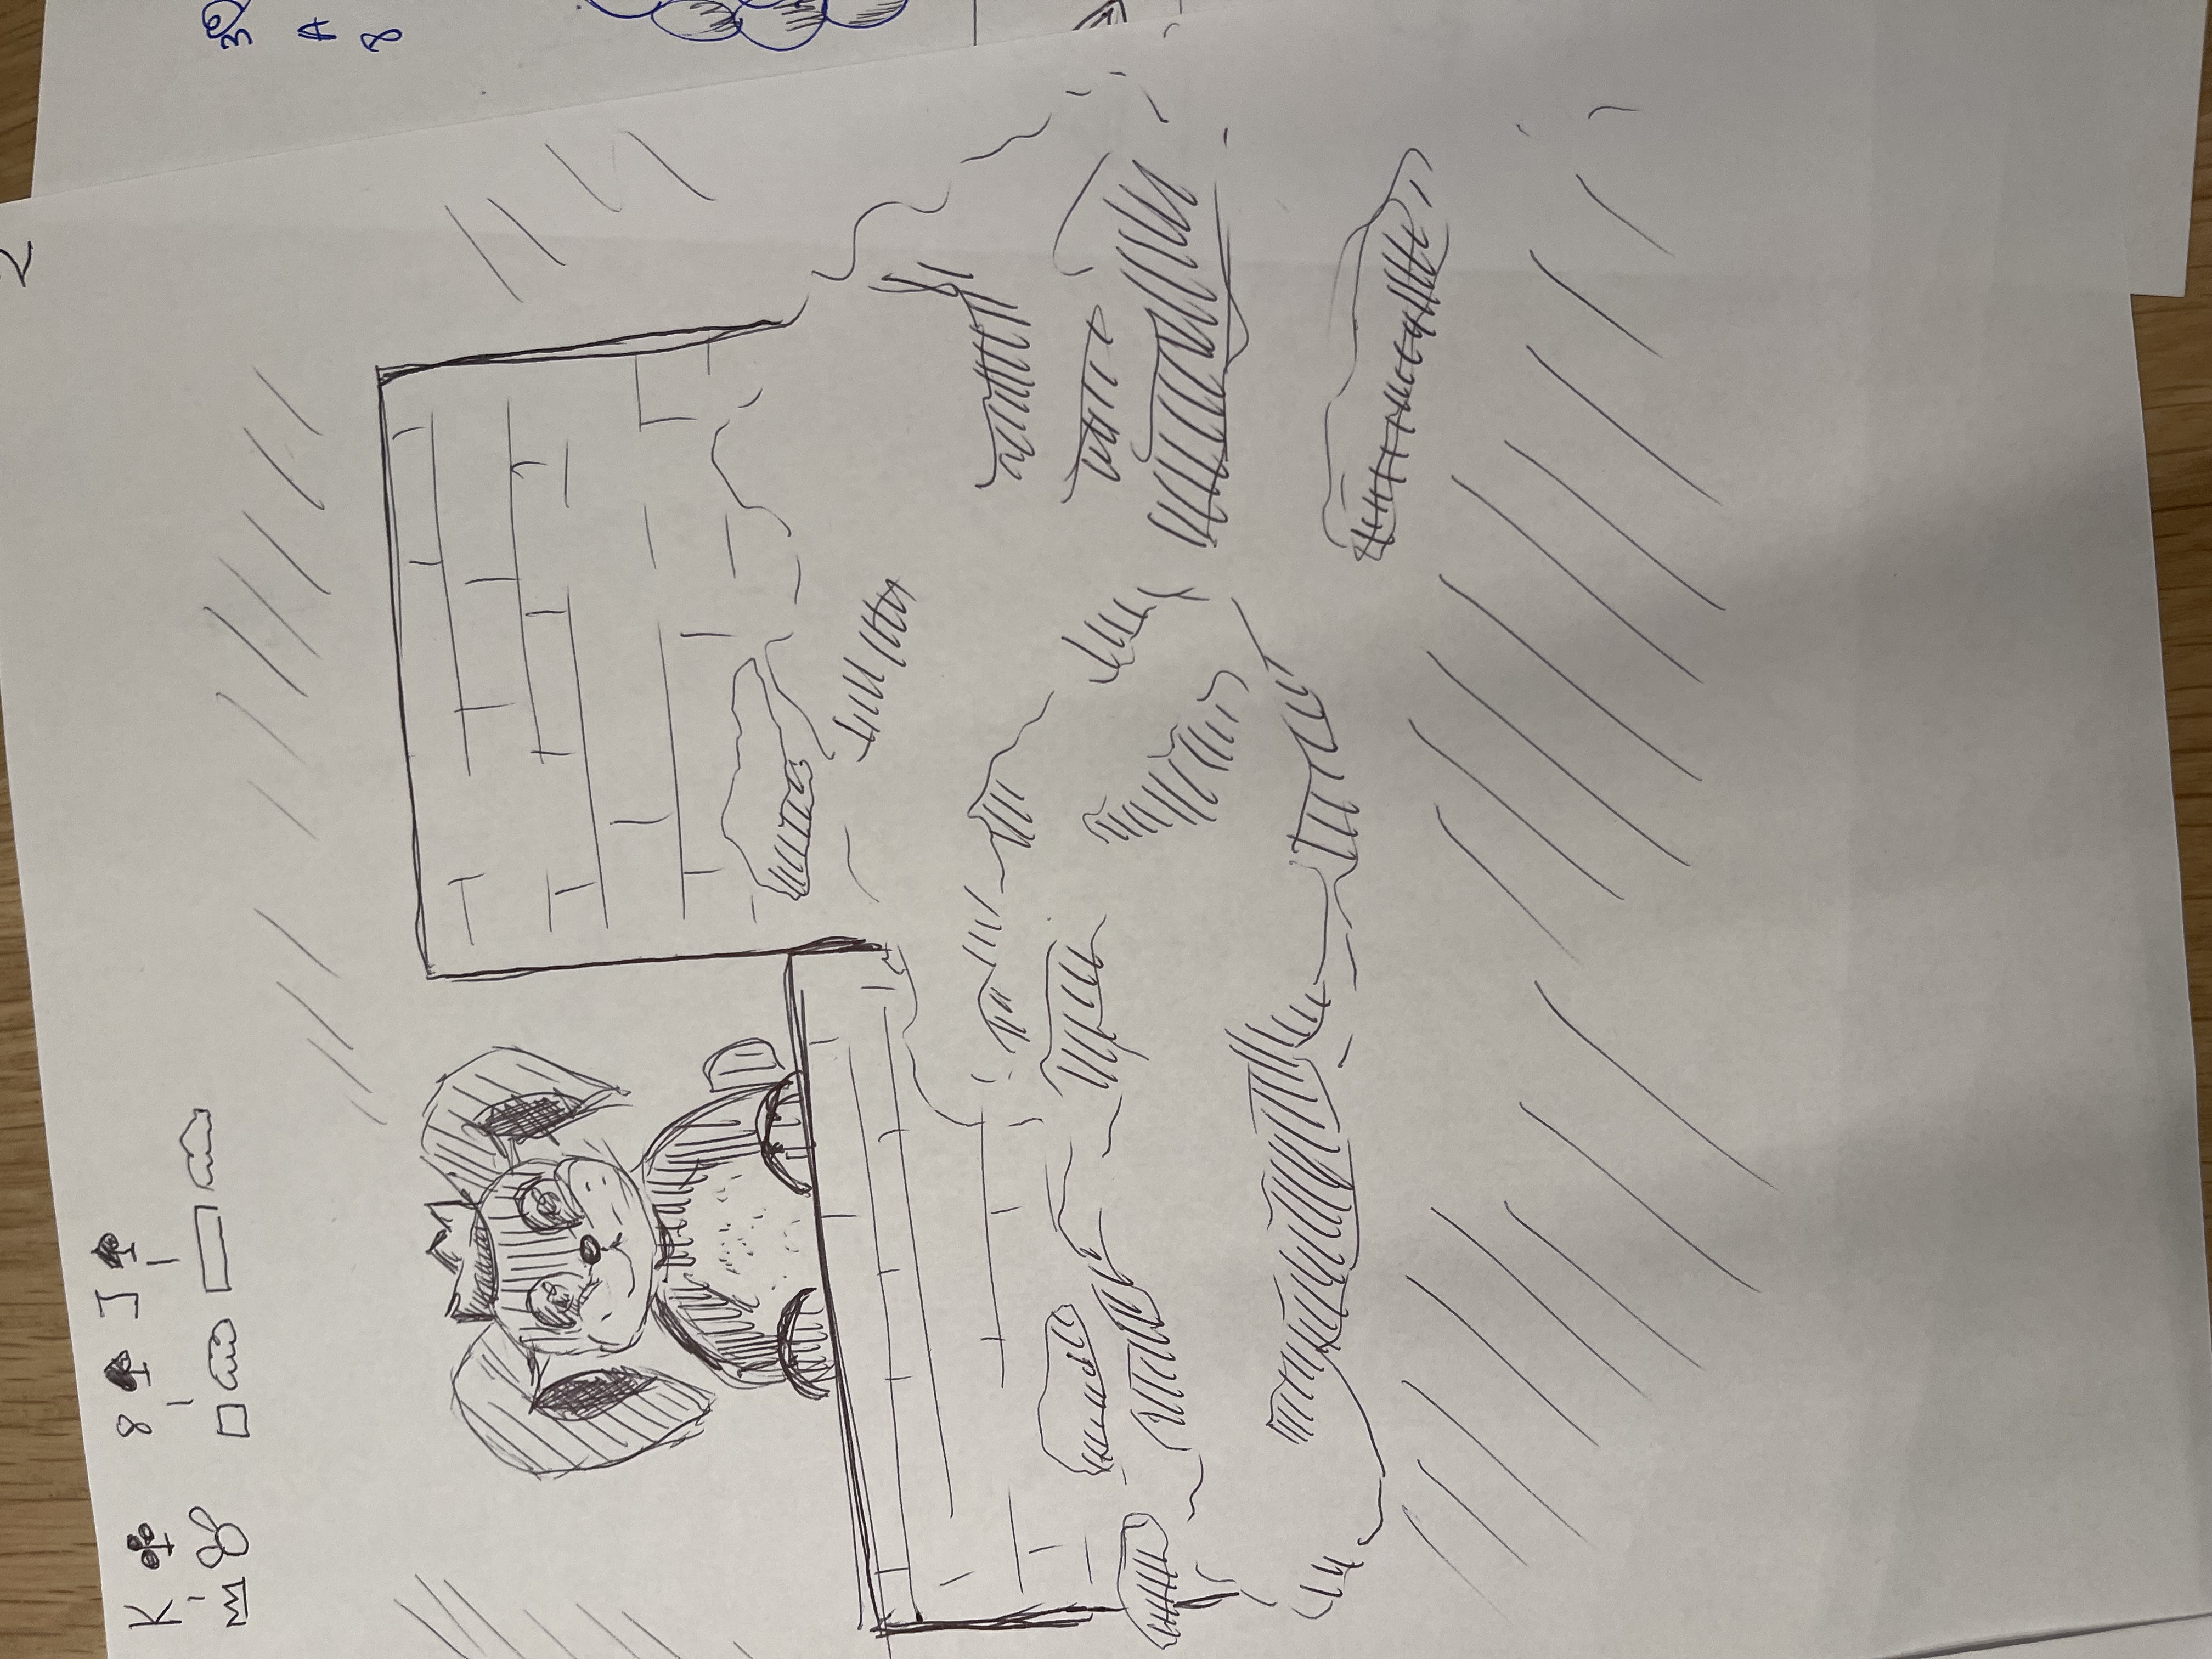 2
K ♣ 8 ♠ J ♠
3♡
A
8